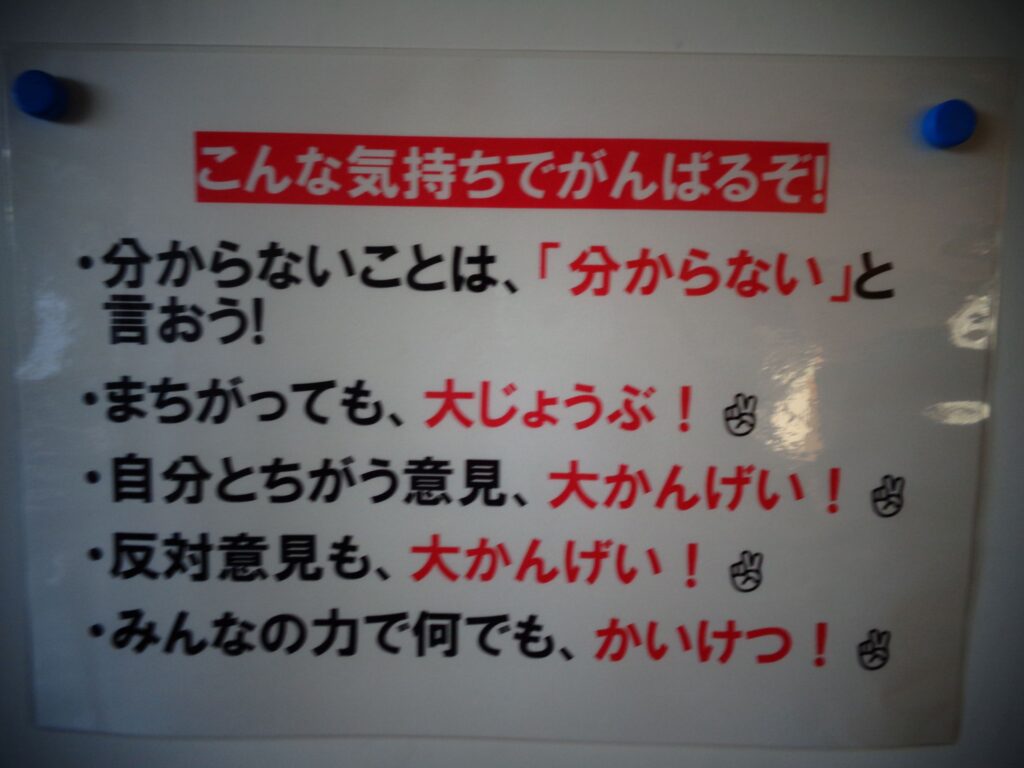 こんな気持ちでがんばるぞ!
・分からないことは、「分からない」と
言おう!
・まちがっても、大じょうぶ！✌
・自分とちがう意見、大かんげい！✌
・反対意見も、大かんげい！✌
・みんなの力で何でも、かいけつ！✌